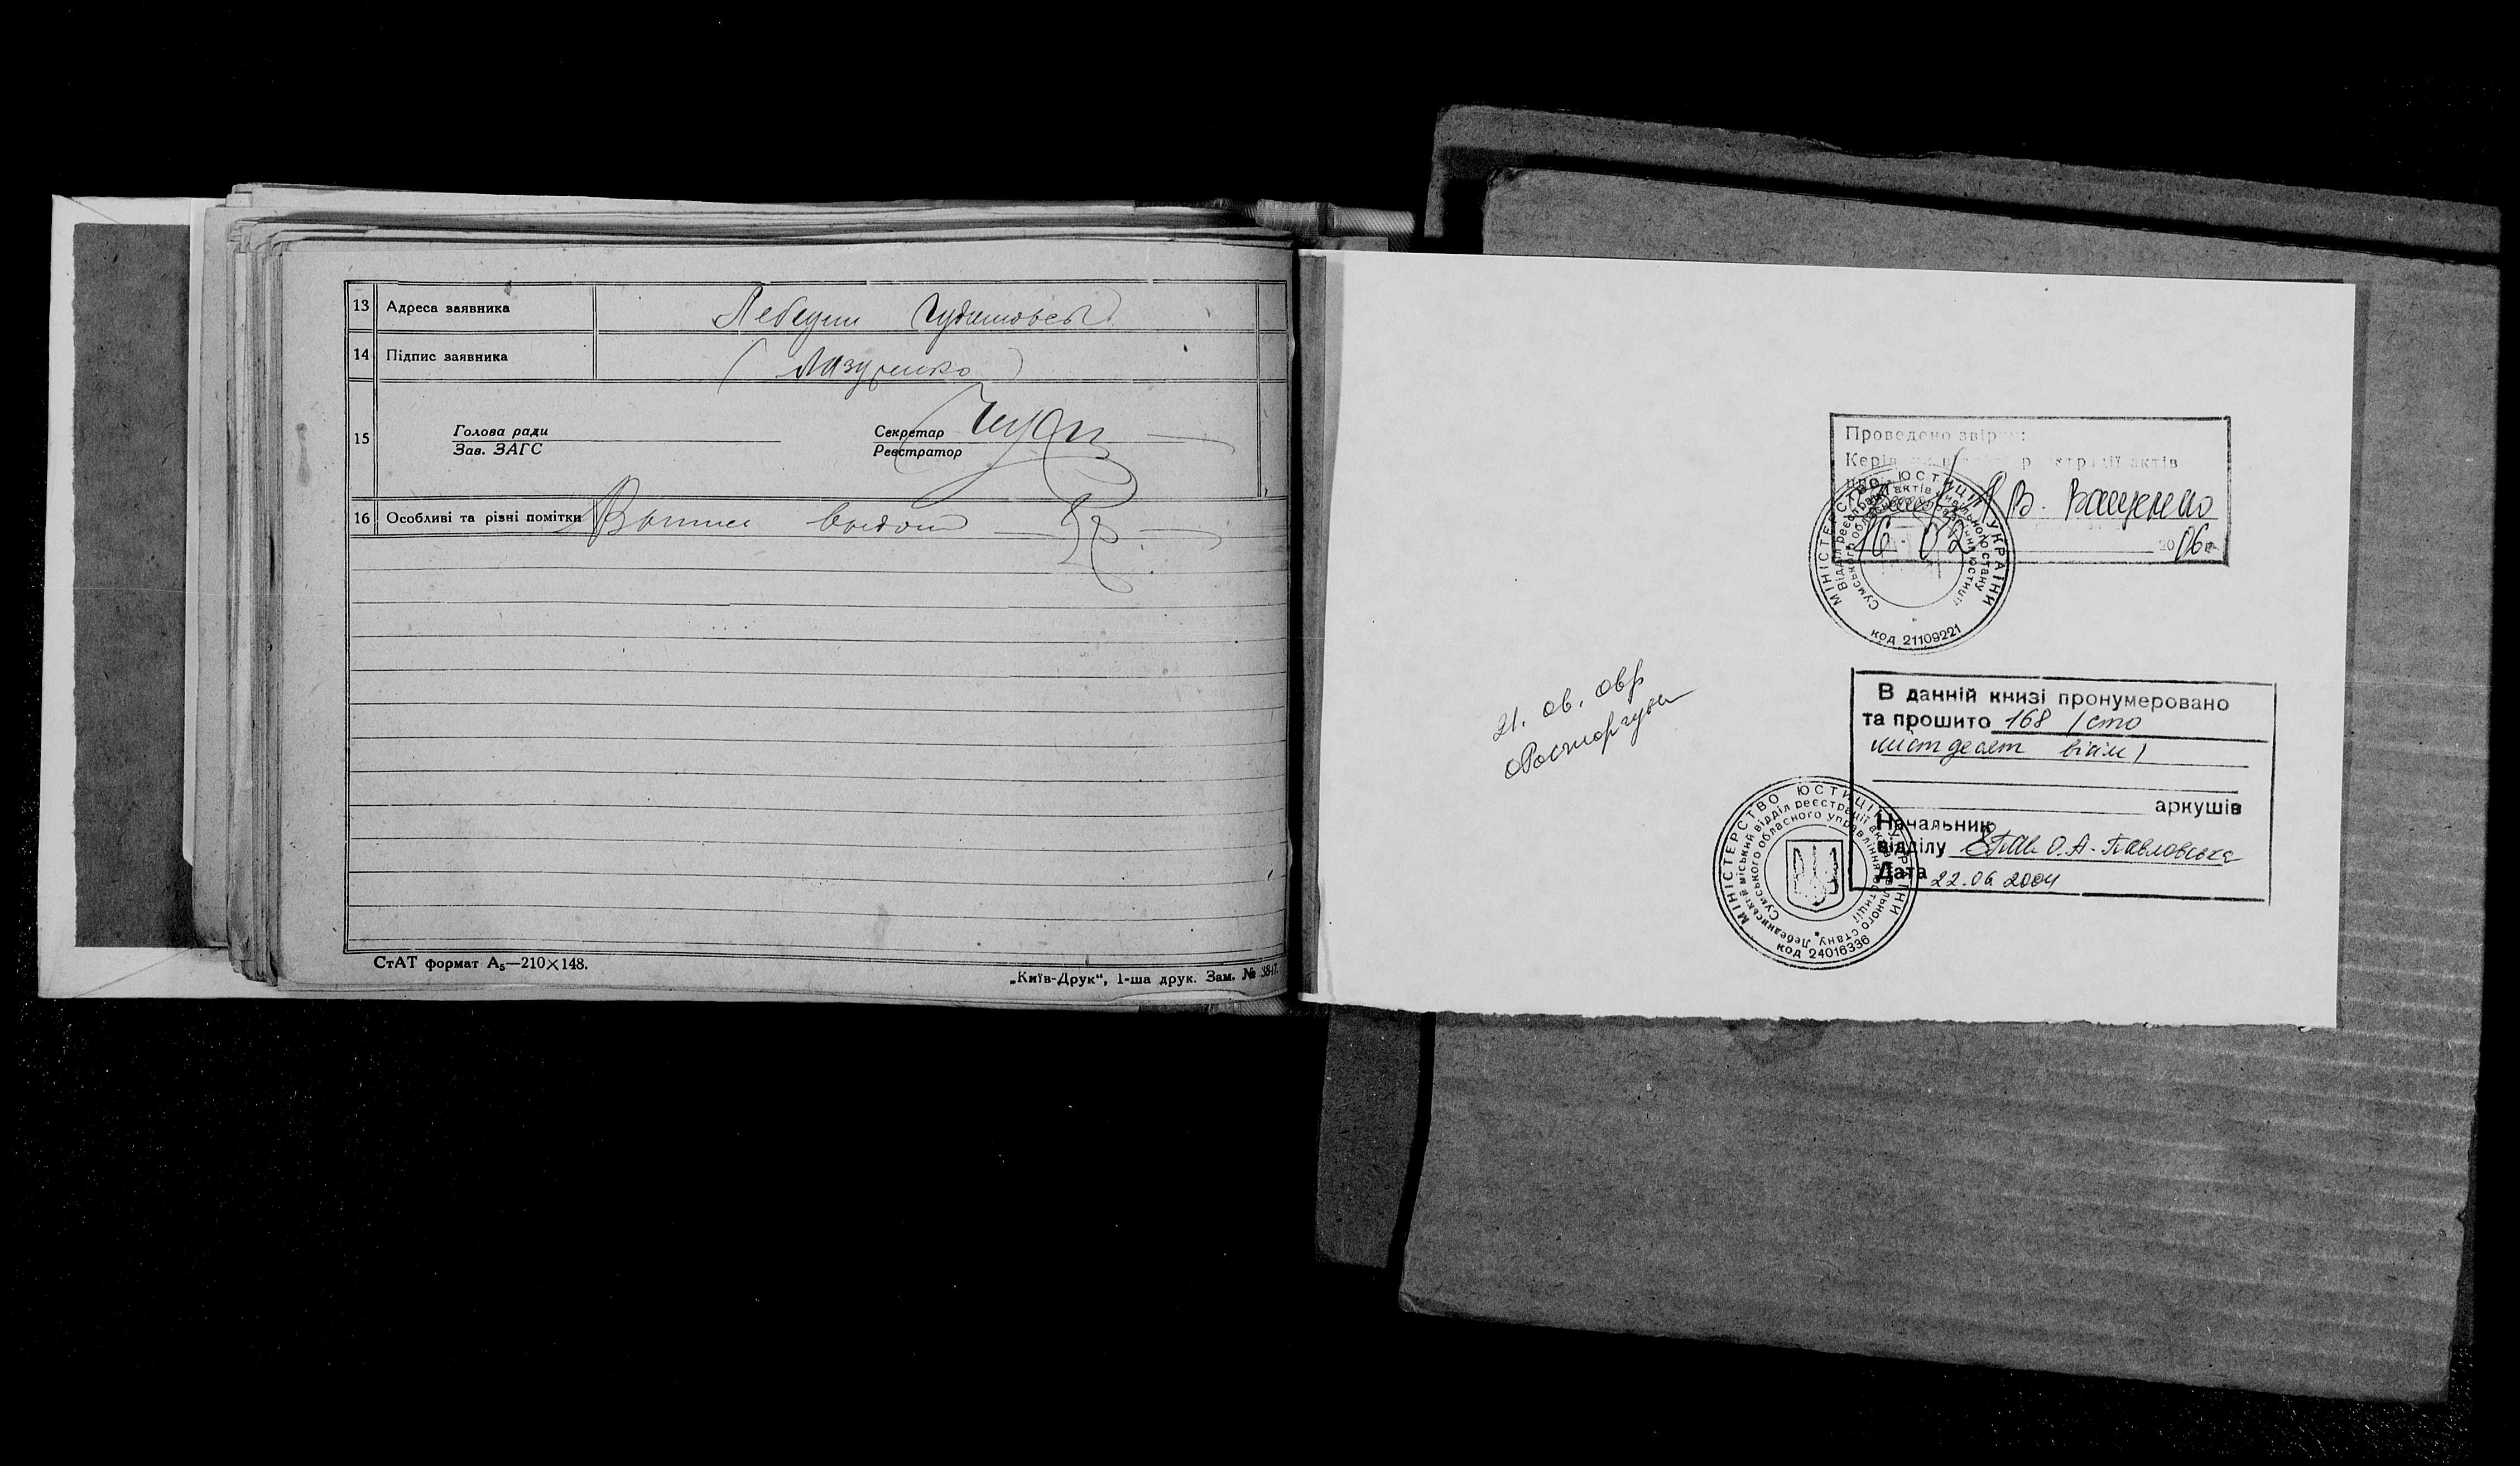 13 Адреса заявника Лебедин
14 Підпис заявника (Лазуренко)
15 Голова ради
Зав. ЗАГС
Секретар
Реєстратор
16 Особливі та різні помітки
СтАТ формат А₅—210×148.
„Київ-Друк“, 1-ша друк. Зам. №
Проведено
актів
В. Ващенко
16. 02 2006р.
МІНІСТЕРСТВО ЮСТИЦІЇ УКРАЇНИ
Відділ реєстрації актів цивільного стану
Сумського обласного управління юстиції
код 21109221
21. 06.
В данній книзі пронумеровано
та прошито 168 /сто
шістдесят вісім/
аркушів
Начальник
відділу О.А. Павловська
Дата 22.06 2004
МІНІСТЕРСТВО ЮСТИЦІЇ УКРАЇНИ
Лебединський міський відділ реєстрації актів цивільного стану
Сумського обласного управління юстиції
код 24016336